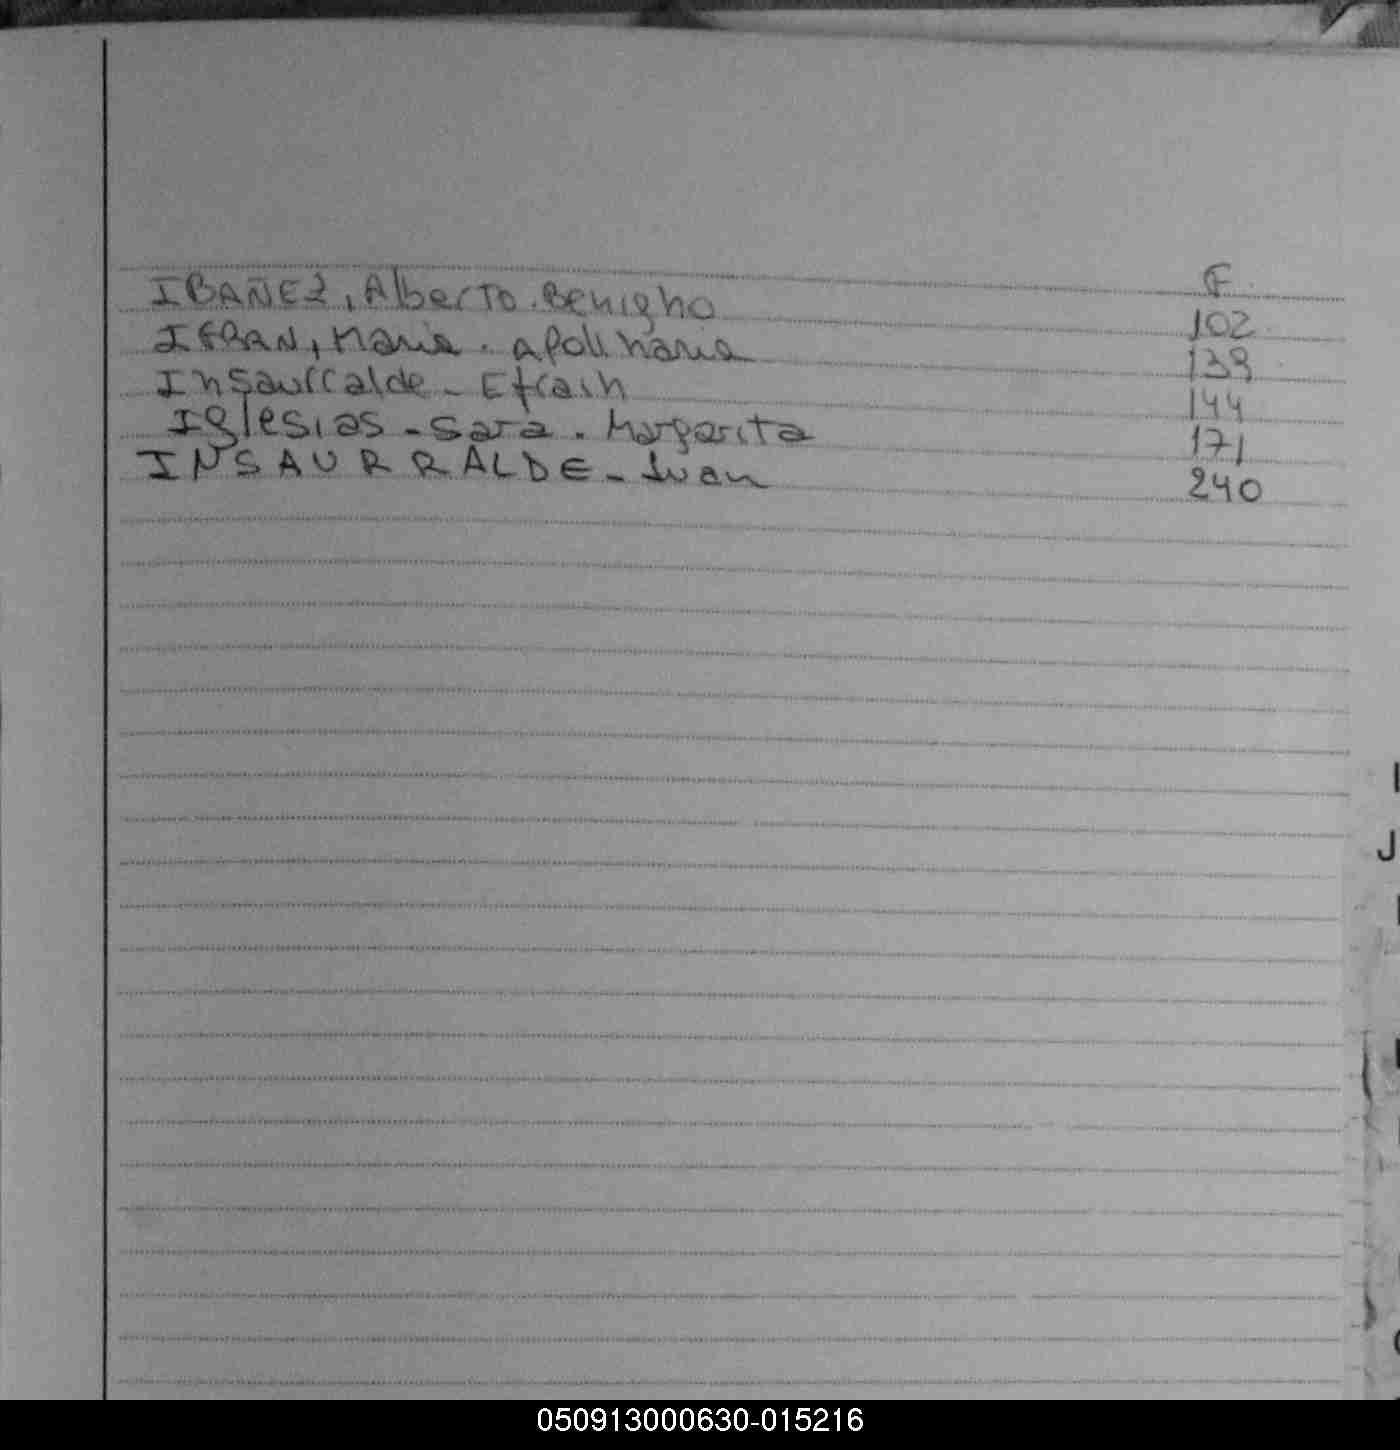 F.
IBAÑEZ, Alberto. Benigno 102
IFRAN, Maria. Apolinaria 139
Insaurralde - Efrain 144
Iglesias - Sara. Margarita 171
INSAURRALDE - Juan 240
J
050913000630-015216